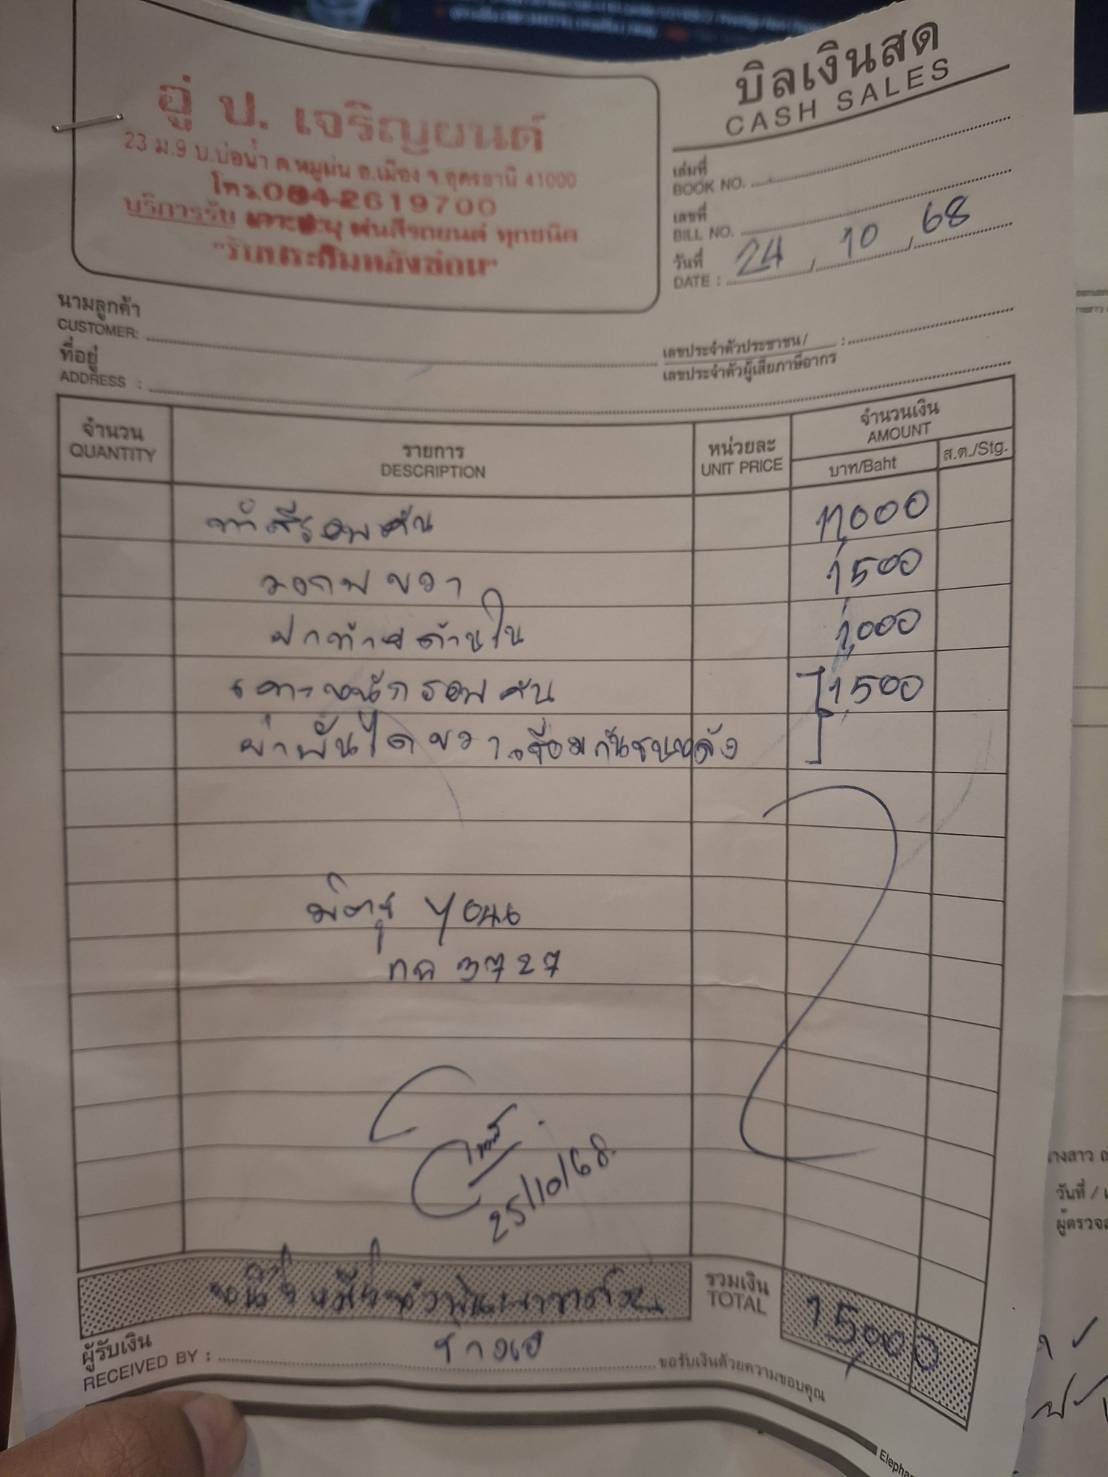 บิลเงินสด
CASH SALES
อู่ ป. เจริญยนต์
23 ม.9 บ.บ่อน้ำ ต.หมูม่น อ.เมือง จ.อุดรธานี 41000
โทร.084-2619700
บริการรับ เคาะปะผุ พ่นสีรถยนต์ ทุกชนิด
"รับประกันหลังซ่อม"
เล่มที่
BOOK NO.
เลขที่
BILL NO.
วันที่
DATE : 24 / 10 / 68
นามลูกค้า
CUSTOMER:
เลขประจำตัวประชาชน/ :
เลขประจำตัวผู้เสียภาษีอากร
ที่อยู่
ADDRESS :
จำนวน รายการ หน่วยละ จำนวนเงิน
QUANTITY DESCRIPTION UNIT PRICE AMOUNT
บาท/Baht ส.ต./Stg.
ทำสีรอบคัน 11,000
ขวา 1,500
ฝาท้ายด้านใน 1,000
เคาะหนักรอบคัน 1,500
ผ่าพันไดขวา เชื่อมกันชนหลัง
3727
25/10/68
รวมเงิน
TOTAL 15,000
ผู้รับเงิน
RECEIVED BY :
ขอรับเงินด้วยความขอบคุณ